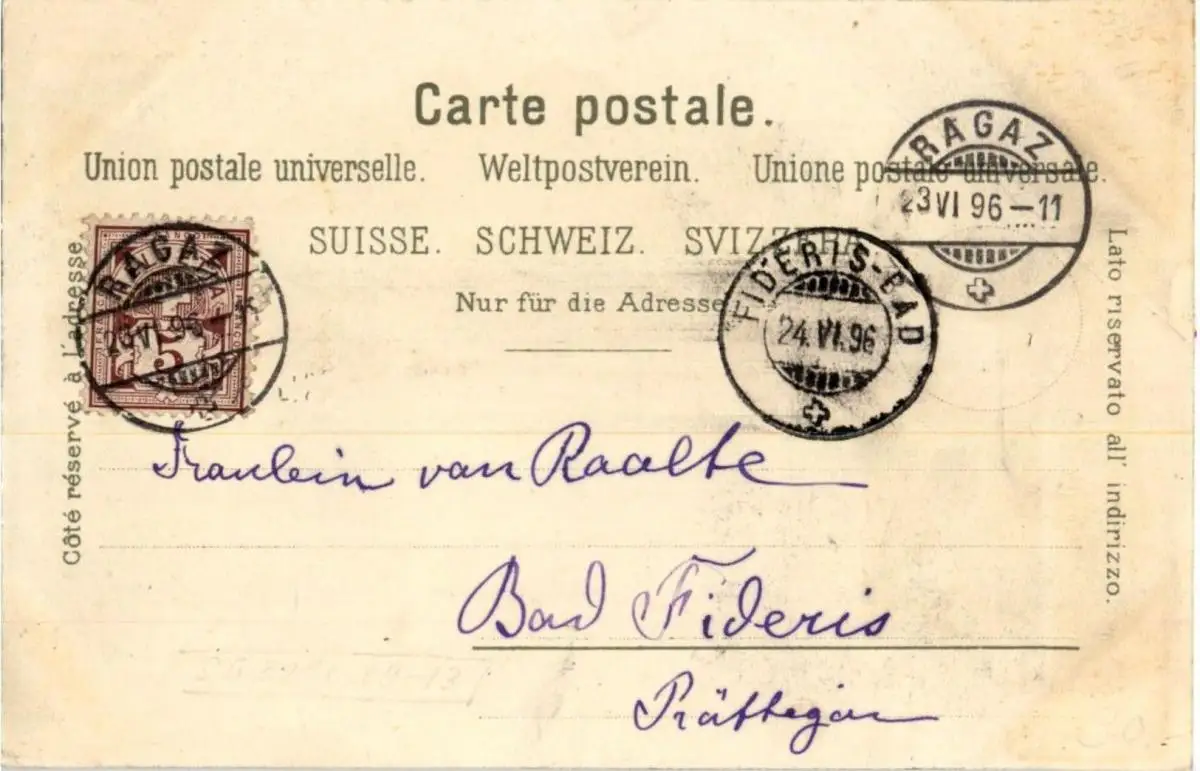 Carte postale.
Union postale universelle. Weltpostverein. Unione postale universale.
SUISSE. SCHWEIZ. SVIZZERA
Nur für die Adresse
RAGAZ
23 VI 96 – 11
FIDERIS-BAD
24. VI. 96
RAGAZ
VI 96
5
Côté réservé à l'adresse
Lato riservato all' indirizzo.
Fraulein van Raalte
Bad Fideris
Prättigau